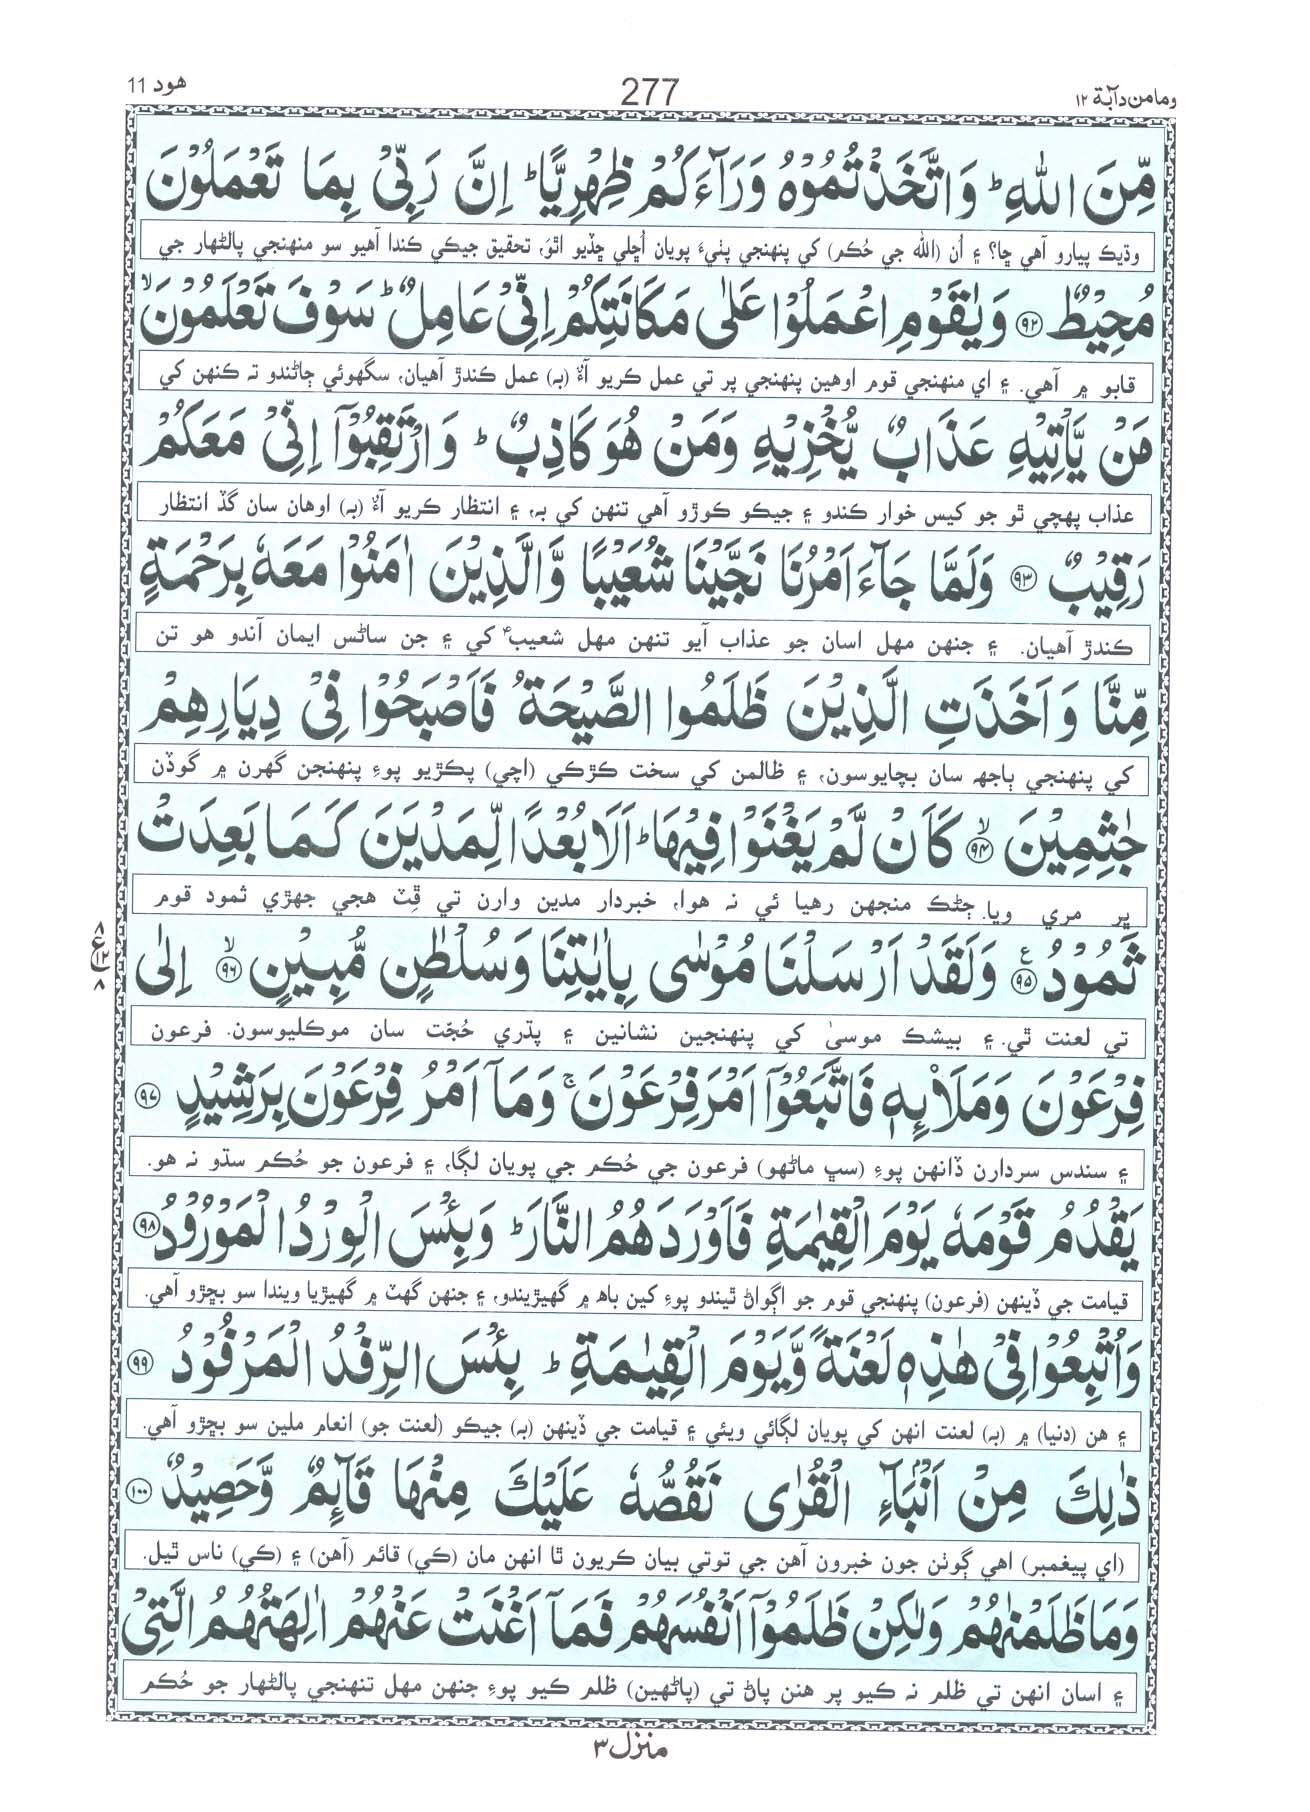 وما من دآبة ١٢
277
هود 11
مِّنَ اللّٰهِ ؕ وَاتَّخَذْتُمُوْهُ وَرَآءَكُمْ ظِهْرِيًّا ؕ اِنَّ رَبِّىْ بِمَا تَعْمَلُوْنَ
وڌيڪ پيارو آهي ڇا؟ ۽ اُن (الله جي حُڪم) کي پنهنجي پٺيءَ پويان اُڇلي ڇڏيو اٿوَ، تحقيق جيڪي ڪندا آهيو سو منهنجي پالڻهار جي
مُحِيْطٌ ﴿۹۲﴾ وَيٰقَوْمِ اعْمَلُوْا عَلٰى مَكَانَتِكُمْ اِنِّىْ عَامِلٌ ؕ سَوْفَ تَعْلَمُوْنَ ۙ
قابو ۾ آهي. ۽ اي منهنجي قوم اوهين پنهنجي پر تي عمل ڪريو آءٌ (به) عمل ڪندڙ آهيان، سگهوئي ڄاڻندو ته ڪنهن کي
مَنْ يَّاْتِيْهِ عَذَابٌ يُّخْزِيْهِ وَمَنْ هُوَ كَاذِبٌ ؕ وَارْتَقِبُوْۤا اِنِّىْ مَعَكُمْ
عذاب پهچي ٿو جو کيس خوار ڪندو ۽ جيڪو ڪوڙو آهي تنهن کي به، ۽ انتظار ڪريو آءٌ (به) اوهان سان گڏ انتظار
رَقِيْبٌ ﴿۹۳﴾ وَلَمَّا جَآءَ اَمْرُنَا نَجَّيْنَا شُعَيْبًا وَّالَّذِيْنَ اٰمَنُوْا مَعَهٗ بِرَحْمَةٍ
ڪندڙ آهيان. ۽ جنهن مهل اسان جو عذاب آيو تنهن مهل شعيبؑ کي ۽ جن ساڻس ايمان آندو هو تن
مِّنَّا وَاَخَذَتِ الَّذِيْنَ ظَلَمُوا الصَّيْحَةُ فَاَصْبَحُوْا فِىْ دِيَارِهِمْ
کي پنهنجي ٻاجهه سان بچايوسون، ۽ ظالمن کي سخت ڪڙڪي (اچي) پڪڙيو پوءِ پنهنجن گهرن ۾ گوڏن
جٰثِمِيْنَ ﴿۹۴﴾ ۙ كَاَنْ لَّمْ يَغْنَوْا فِيْهَا ؕ اَلَا بُعْدًا لِّمَدْيَنَ كَمَا بَعِدَتْ
ڀر مري ويا. ڄڻڪ منجهن رهيا ئي نه هوا، خبردار مدين وارن تي ڦِٽ هجي جهڙي ثمود قوم
ثَمُوْدُ ﴿۹۵﴾ ع وَلَقَدْ اَرْسَلْنَا مُوْسٰى بِاٰيٰتِنَا وَسُلْطٰنٍ مُّبِيْنٍ ﴿۹۶﴾ ۙ اِلٰى
٨ ع ١٢ ٨
تي لعنت ٿي. ۽ بيشڪ موسيٰ کي پنهنجين نشانين ۽ پڌري حُجّت سان موڪليوسون. فرعون
فِرْعَوْنَ وَمَلَا۟ئِهٖ فَاتَّبَعُوْۤا اَمْرَ فِرْعَوْنَ ۚ وَمَاۤ اَمْرُ فِرْعَوْنَ بِرَشِيْدٍ ﴿۹۷﴾
۽ سندس سردارن ڏانهن پوءِ (سڀ ماڻهو) فرعون جي حُڪم جي پويان لڳا، ۽ فرعون جو حُڪم سڌو نه هو.
يَقْدُمُ قَوْمَهٗ يَوْمَ الْقِيٰمَةِ فَاَوْرَدَهُمُ النَّارَ ؕ وَبِئْسَ الْوِرْدُ الْمَوْرُوْدُ ﴿۹۸﴾
قيامت جي ڏينهن (فرعون) پنهنجي قوم جو اڳواڻ ٿيندو پوءِ کين باهه ۾ گهيڙيندو، ۽ جنهن گهٽ ۾ گهيڙيا ويندا سو بڇڙو آهي.
وَاُتْبِعُوْا فِىْ هٰذِهٖ لَعْنَةً وَّيَوْمَ الْقِيٰمَةِ ؕ بِئْسَ الرِّفْدُ الْمَرْفُوْدُ ﴿۹۹﴾
۽ هن (دنيا) ۾ (به) لعنت انهن کي پويان لڳائي ويئي ۽ قيامت جي ڏينهن (به) جيڪو (لعنت جو) انعام ملين سو بڇڙو آهي.
ذٰلِكَ مِنْ اَنْۢبَآءِ الْقُرٰى نَقُصُّهٗ عَلَيْكَ مِنْهَا قَآئِمٌ وَّحَصِيْدٌ ﴿۱۰۰﴾
(اي پيغمبر) اهي ڳوٺن جون خبرون آهن جي توتي بيان ڪريون ٿا انهن مان (ڪي) قائم (آهن) ۽ (ڪي) ناس ٿيل.
وَمَا ظَلَمْنٰهُمْ وَلٰكِنْ ظَلَمُوْۤا اَنْفُسَهُمْ فَمَاۤ اَغْنَتْ عَنْهُمْ اٰلِهَتُهُمُ الَّتِىْ
۽ اسان انهن تي ظلم نه ڪيو پر هنن پاڻ تي (پاڻهين) ظلم ڪيو پوءِ جنهن مهل تنهنجي پالڻهار جو حُڪم
منزل ٣